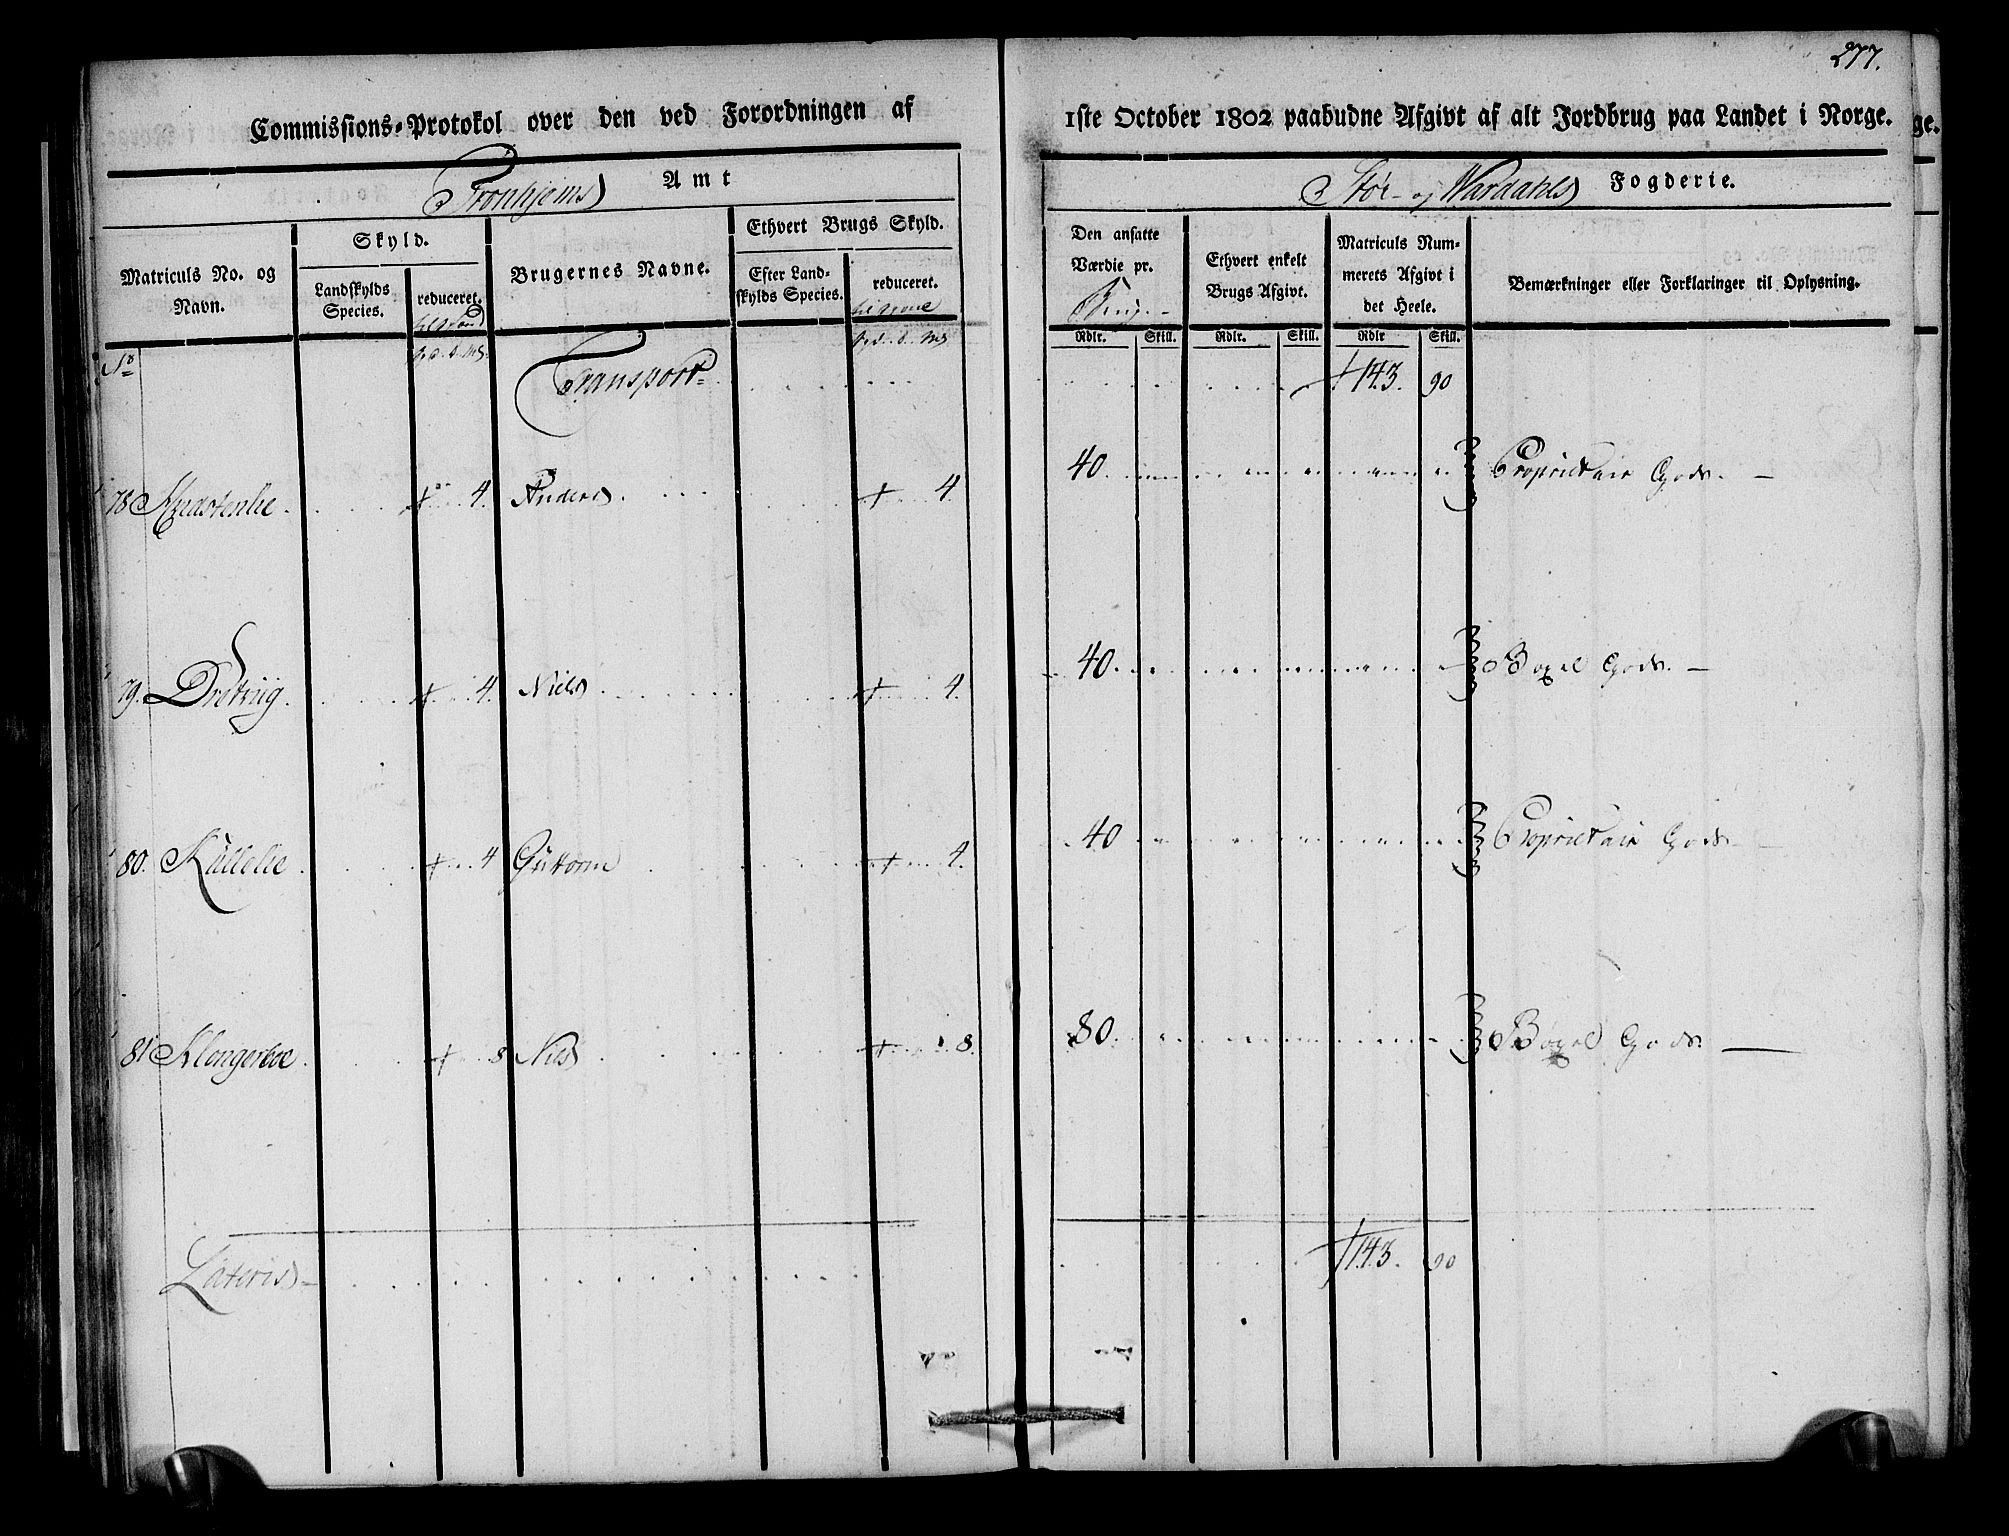 277.
Commissions-Protokol over den ved Forordningen af 1ste October 1802 paabudne Afgivt af alt Jordbrug paa Landet i Norge.
Tronhjems Amt
Stør- og Værdahls Fogderie.
Matriculs No. og Navn.
Skyld.
Landskylds Species.
reduceret.
Brugernes Navne.
Ethvert Brugs Skyld.
Efter Landskylds Species.
reduceret.
Den ansatte Værdie pr.
Brug.
Ethvert enkelt Brugs Afgivt.
Matriculs Nummerets Afgivt i det Heele.
Bemærkninger eller Forklaringer til Oplysning.
Rdlr. Skill. Rdlr. Skill. Rdlr Skill.
No
Transport 143. 90
78 4. Anders 4. 40. Proprietair Gods.
79. 4. Niels 4. 40. Bøxel Gods.
80. Küllelie 4 Guttorm 4. 40 Proprietair Gods
81 Klengerboe 8 Niels 8. 80. Bøxel Gods.
Lateris 143. 90